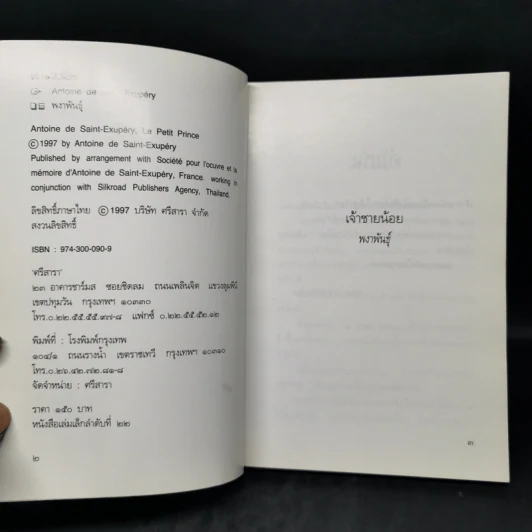 Antoine de Exupéry
พงาพันธุ์
Antoine de Saint-Exupéry, Le Petit Prince
©1997 by Antoine de Saint-Exupéry
Published by arrangement with Société pour l'oeuvre et la
mémoire d'Antoine de Saint-Exupéry, France. working in
conjunction with Silkroad Publishers Agency, Thailand.
ลิขสิทธิ์ภาษาไทย ©1997 บริษัท ศรีสารา จำกัด
สงวนลิขสิทธิ์
ISBN : 974-300-090-9
"ศรีสารา"
๒๓ อาคารชาร์มส ซอยชิดลม ถนนเพลินจิต แขวงลุมพินี
เขตปทุมวัน กรุงเทพฯ ๑๐๓๓๐
โทร.๐.๒๒.๕๕.๕๔.๙๗-๘ แฟกซ์ ๐.๒๒.๕๕.๕๒.๑๒
พิมพ์ที่ : โรงพิมพ์กรุงเทพ
๑๐๔/๑ ถนนรางน้ำ เขตราชเทวี กรุงเทพฯ ๑๐๓๑๐
โทร.๐.๒๖.๔๒.๗๒.๘๑-๘
จัดจำหน่าย : ศรีสารา
ราคา ๑๕๐ บาท
หนังสือเล่มเล็กลำดับที่ ๒๒
๒
เจ้าชายน้อย
พงาพันธุ์
๓